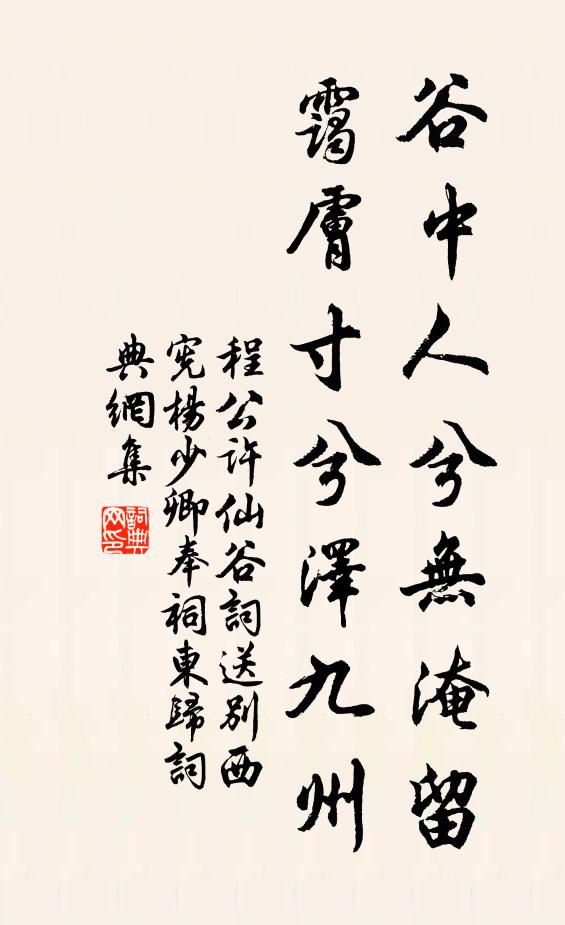 谷中人兮無淹留
靄膚寸兮澤九州
程公許仙谷詞送別西
憲楊少卿奉祠東歸詞
典網集
詞典网印